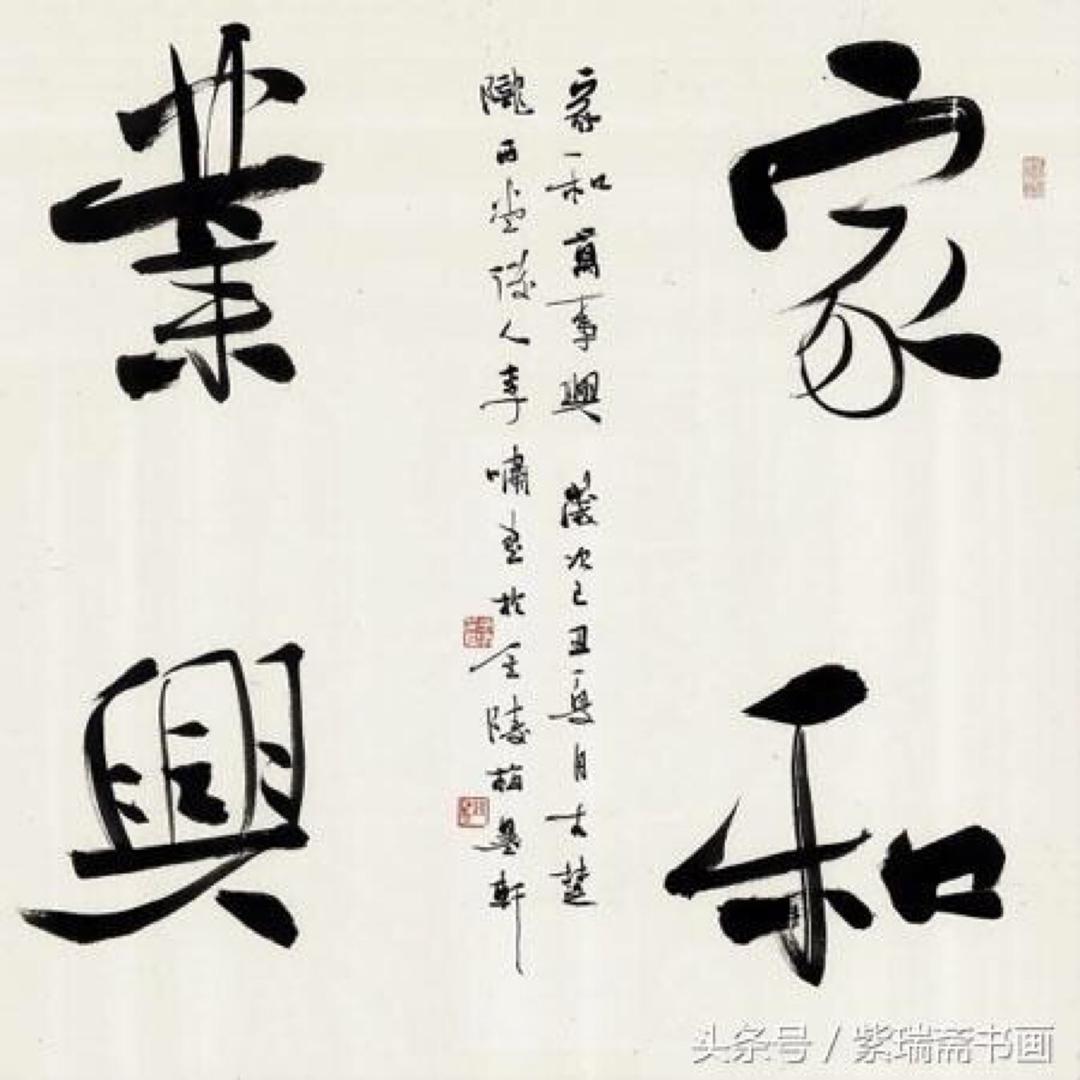 家和
家和萬事興 歲次己丑 月古楚
隴西堂後人李嘯書於金陵梅墨軒
業興
头条号 / 紫瑞斋书画